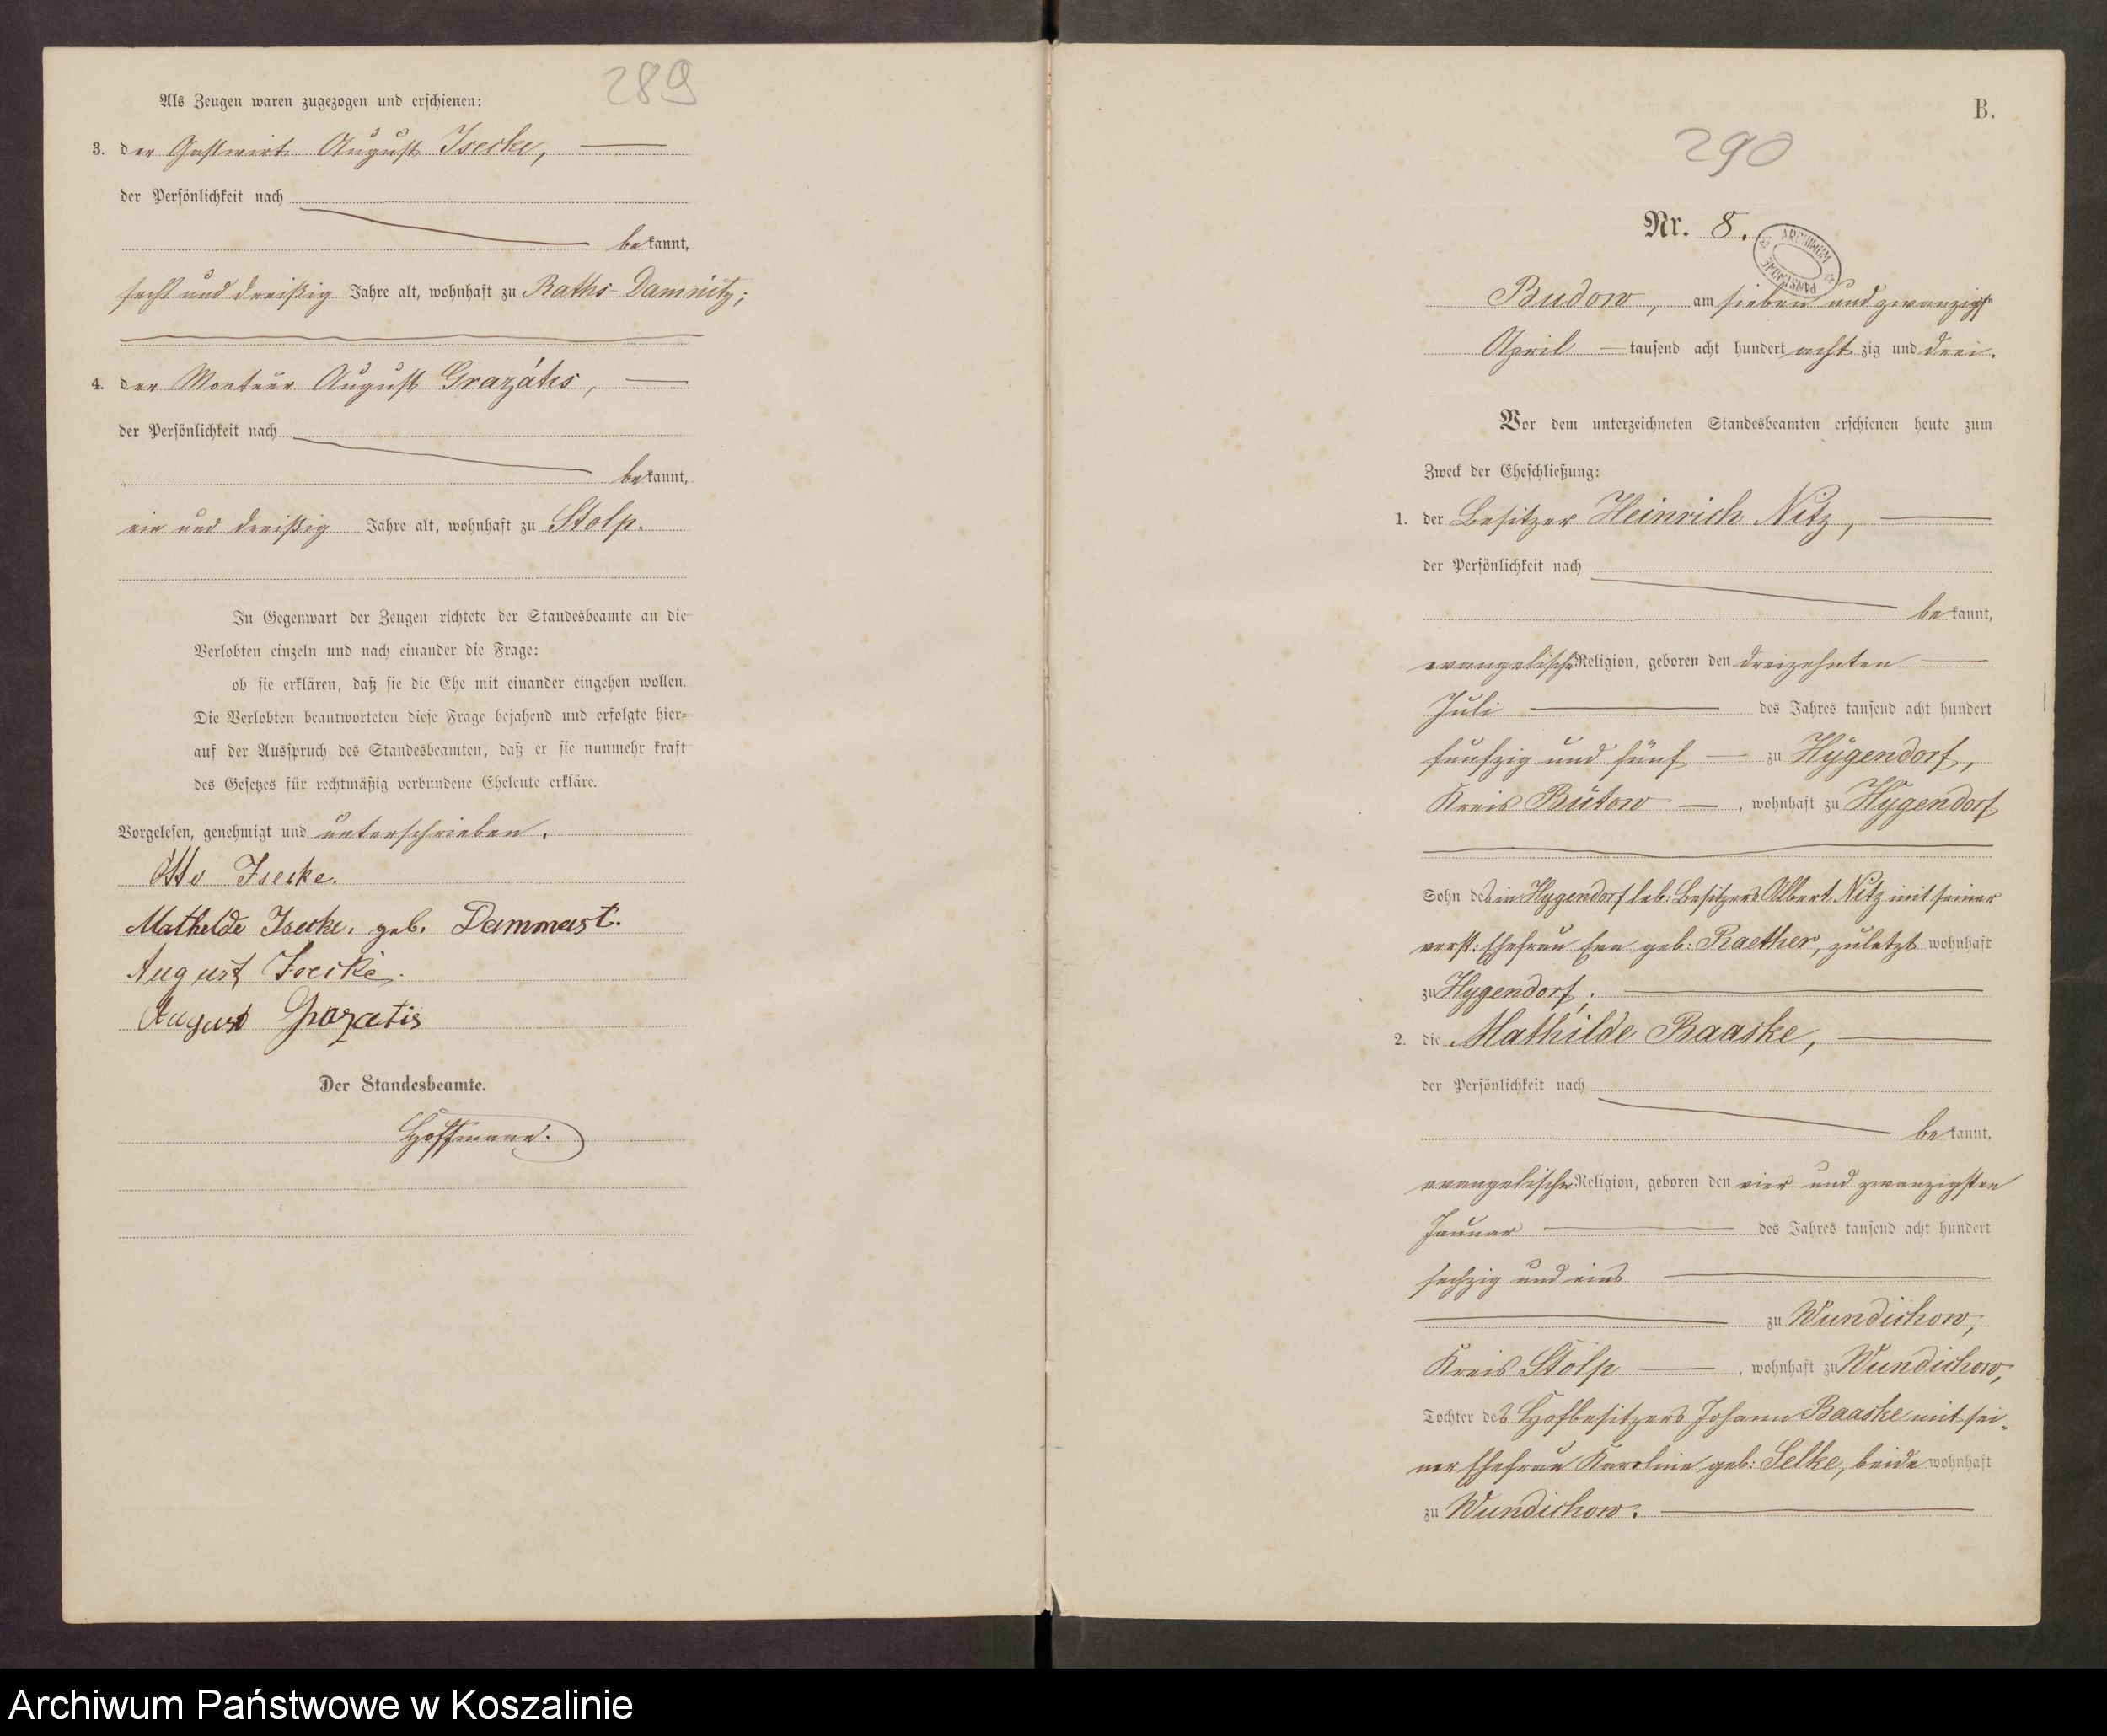 289
Als Zeugen waren zugezogen und erschienen:
3. der Gastwirt August Isecke,
der Persönlichkeit nach
bekannt,
sechs und dreißig Jahre alt, wohnhaft zu Raths-Damnitz;
4. der Monteur August Grazátis,
der Persönlichkeit nach
bekannt,
ein und dreißig Jahre alt, wohnhaft zu Stolp.
In Gegenwart der Zeugen richtete der Standesbeamte an die
Verlobten einzeln und nach einander die Frage:
ob sie erklären, daß sie die Ehe mit einander eingehen wollen.
Die Verlobten beantworteten diese Frage bejahend und erfolgte hier-
auf der Ausspruch des Standesbeamten, daß er sie nunmehr kraft
des Gesetzes für rechtmäßig verbundene Eheleute erkläre.
Vorgelesen, genehmigt und unterschrieben.
Otto Isecke.
Mathilde Isecke, geb. Dammast.
August Isecke.
August Grazatis
Der Standesbeamte.
Hoffmann.
B.
290
Nr. 8.
ARCHIWUM PAŃSTWOWE
Budow, am sieben und zwanzigsten
April tausend acht hundert achtzig und drei.
Vor dem unterzeichneten Standesbeamten erschienen heute zum
Zweck der Eheschließung:
1. der Besitzer Heinrich Nitz,
der Persönlichkeit nach
bekannt,
evangelischer Religion, geboren den dreizehnten
Juli des Jahres tausend acht hundert
funfzig und fünf zu Hygendorf,
Kreis Bütow, wohnhaft zu Hygendorf
Sohn des in Hygendorf leb: Besitzers Albert Nitz mit seiner
verst: Ehefrau Eva geb: Raether, zuletzt wohnhaft
zu Hygendorf;
2. die Mathilde Baaske,
der Persönlichkeit nach
bekannt,
evangelischer Religion, geboren den vier und zwanzigsten
Januar des Jahres tausend acht hundert
sechzig und eins
zu Wundichow,
Kreis Stolp, wohnhaft zu Wundichow,
Tochter des Hofbesitzers Johann Baaske mit sei-
ner Ehefrau Karoline geb: Selke, beide wohnhaft
zu Wundichow.
Archiwum Państwowe w Koszalinie